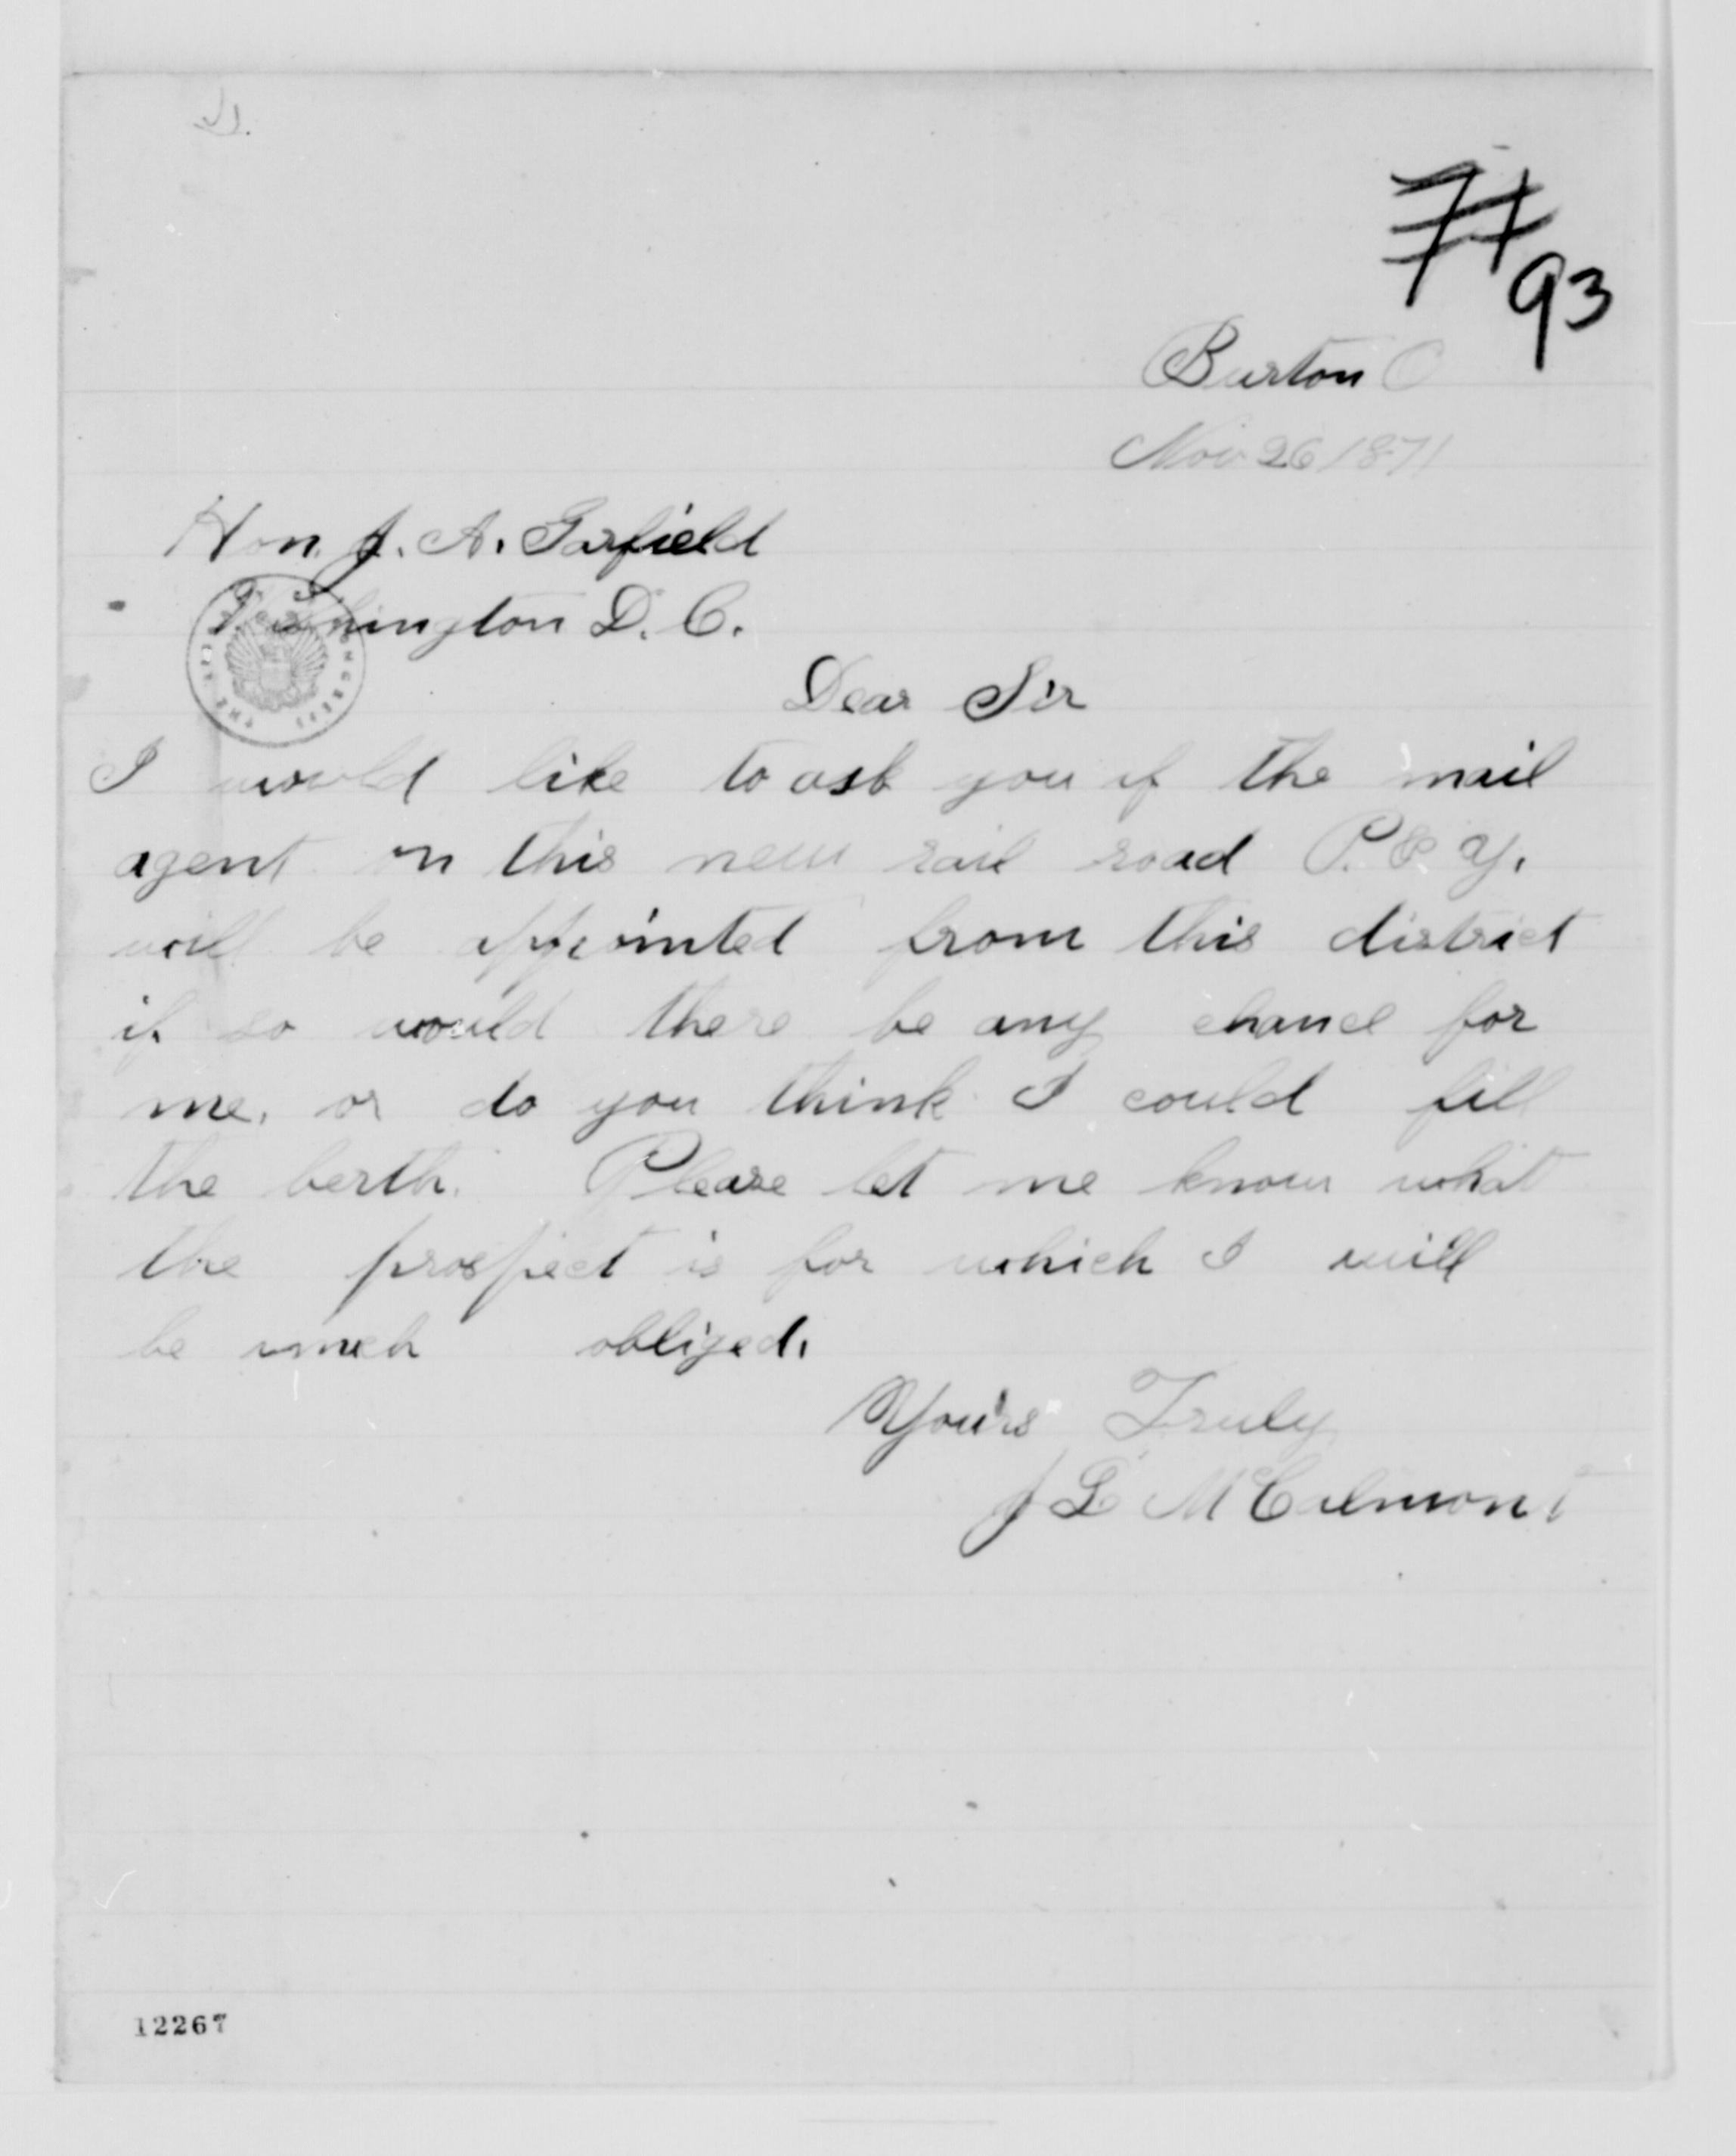 77
93
Burton O
Nov 26 1871
Hon. J. A. Garfield
Washington D. C.
Dear Sir
I would like to ask you if the mail
agent on this new rail road P. & Y.
will be appointed from this district
if so would there be any chance for
me, or do you think I could fill
the berth. Please let me know what
the prospect is for which I will
be much obliged.
Yours Truly
J L McCalmont
12267